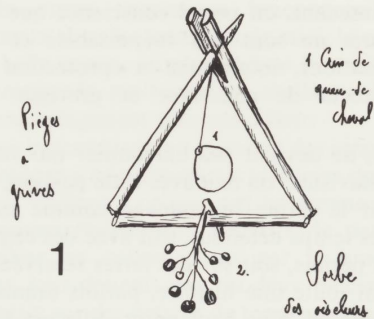 1 Crin de
queue de
cheval
Pièges
à
grives
1
1
2.
Sorbe
des oiseleurs